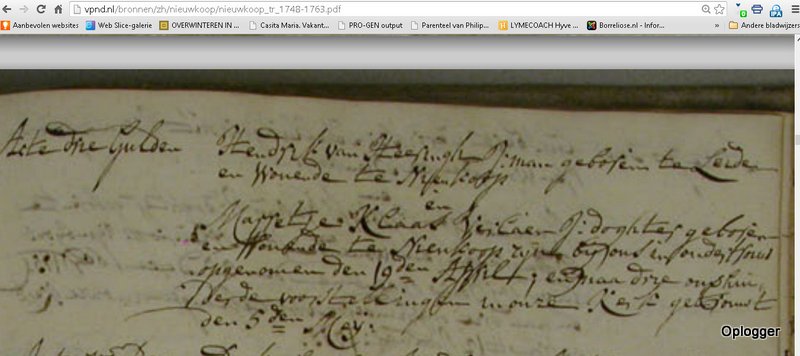 vpnd.nl/bronnen/zh/nieuwkoop/nieuwkoop_tr_1748-1763.pdf
Aanbevolen websites Web Slice-galerie OVERWINTEREN IN ... Casita Maria. Vakant... PRO-GEN output Parenteel van Philip... LYMECOACH Hyve ... Borreliose.nl - Infor... » Andere bladwijzers
Acte drie Gulden Hendrik van J:man geboren te Leiden
en Wonende te Nieukoop
en
Klaas J:doghter geboren
en Wonende te Nieukoop zijn bij ons in ondertrouw
opgenomen den 19den April, en naar drie onverhin-
derde voorstellingen in onze Kerk getrouwt
den 5den Mey.
Oplogger